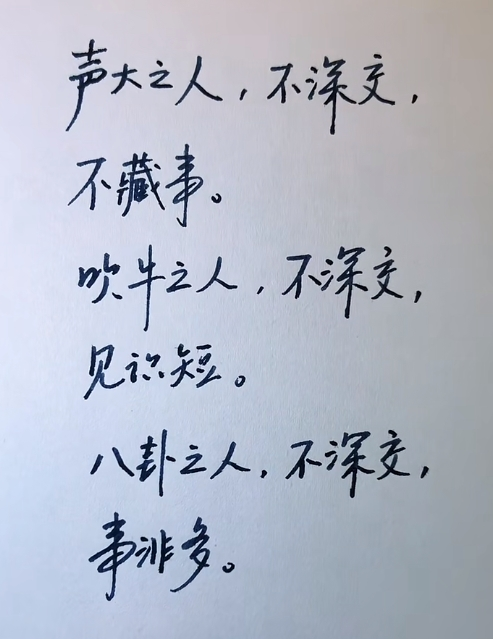 声大之人，不深交，
不藏事。
吹牛之人，不深交，
见识短。
八卦之人，不深交，
事非多。